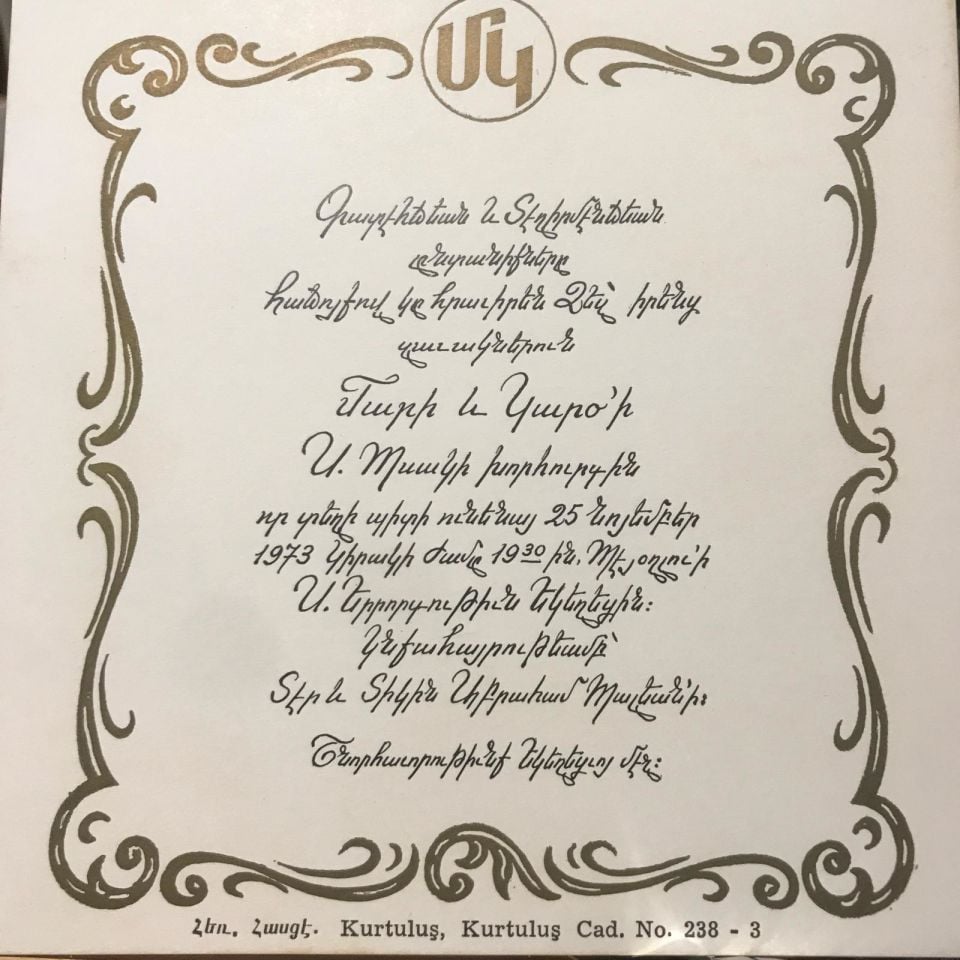 ՄԿ
եւ Տէյիրմէնճեան
ընտանիքները
հաճոյքով կը հրաւիրեն Ձեզ իրենց
զաւակներուն
Մարի եւ Կարօ՛ի
Ս. Պսակի խորհուրդին
որ տեղի պիտի ունենայ 25 Նոյեմբեր
1973 Կիրակի ժամը 19³⁰ ին, Պէյօղլու՛ի
Ս. Երրորդութիւն Եկեղեցին։
Կնքահայրութեամբ՝
Տէր եւ Տիկին Աբրահամ
Շնորհաւորութիւնք եկեղեցւոյ մէջ։
Հեռ. Հասցէ. Kurtuluş, Kurtuluş Cad. No. 238 - 3